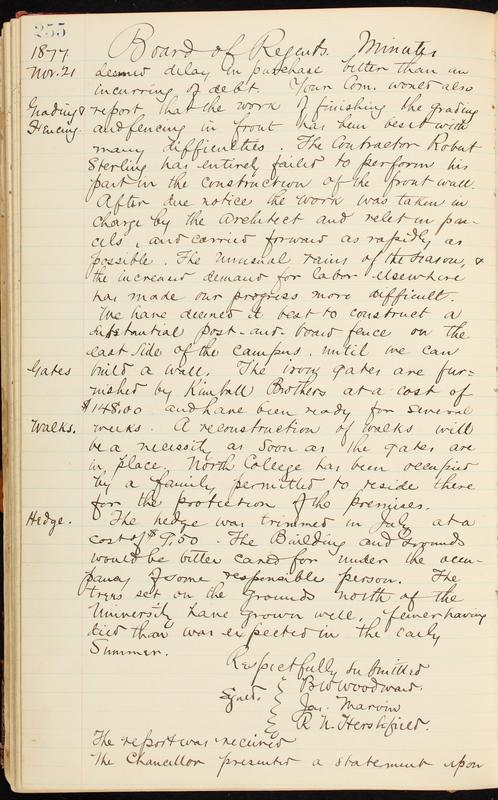 255
1877 Board of Regents. Minutes
Nov. 21 deemed delay in purchase better than an
incurring of debt. Your Com. would also
Grading & report that the work of finishing the grading
Fencing. and fencing in front has been beset with
many difficulties. The Contractor Robert
Sterling has entirely failed to perform his
part in the construction of the front wall.
After due notice the work was taken in
charge by the Architect and relet in par-
cels, and carried forward as rapidly as
possible. The unusual rains of the season, &
the increased demand for labor elsewhere
has made our progress more difficult.
We have deemed it best to construct a
substantial post-and-board fence on the
east side of the campus, until we can
Gates build a wall. The irong gates are fur-
nished by Kimball Brothers at a cost of
$148.00 and have been ready for several
Walks. weeks. A reconstruction of walks will
be a necessity as soon as the gates are
in place. North College has been occupied
by a family permitted to reside there
for the protection of the premises.
Hedge. The hedge was trimmed in July at a
cost of $9.50. The Building and Grounds
would be better cared for under the occu-
pancy of some responsible person. The
trees set on the grounds north of the
University have grown well, fewer having
died than was expected in the early
Summer.
Respectfully submitted
Signed. { B W Woodward.
{ Jas. Marvin
{ R N Hershfield.
The report was received
The Chancellor presented a statement upon